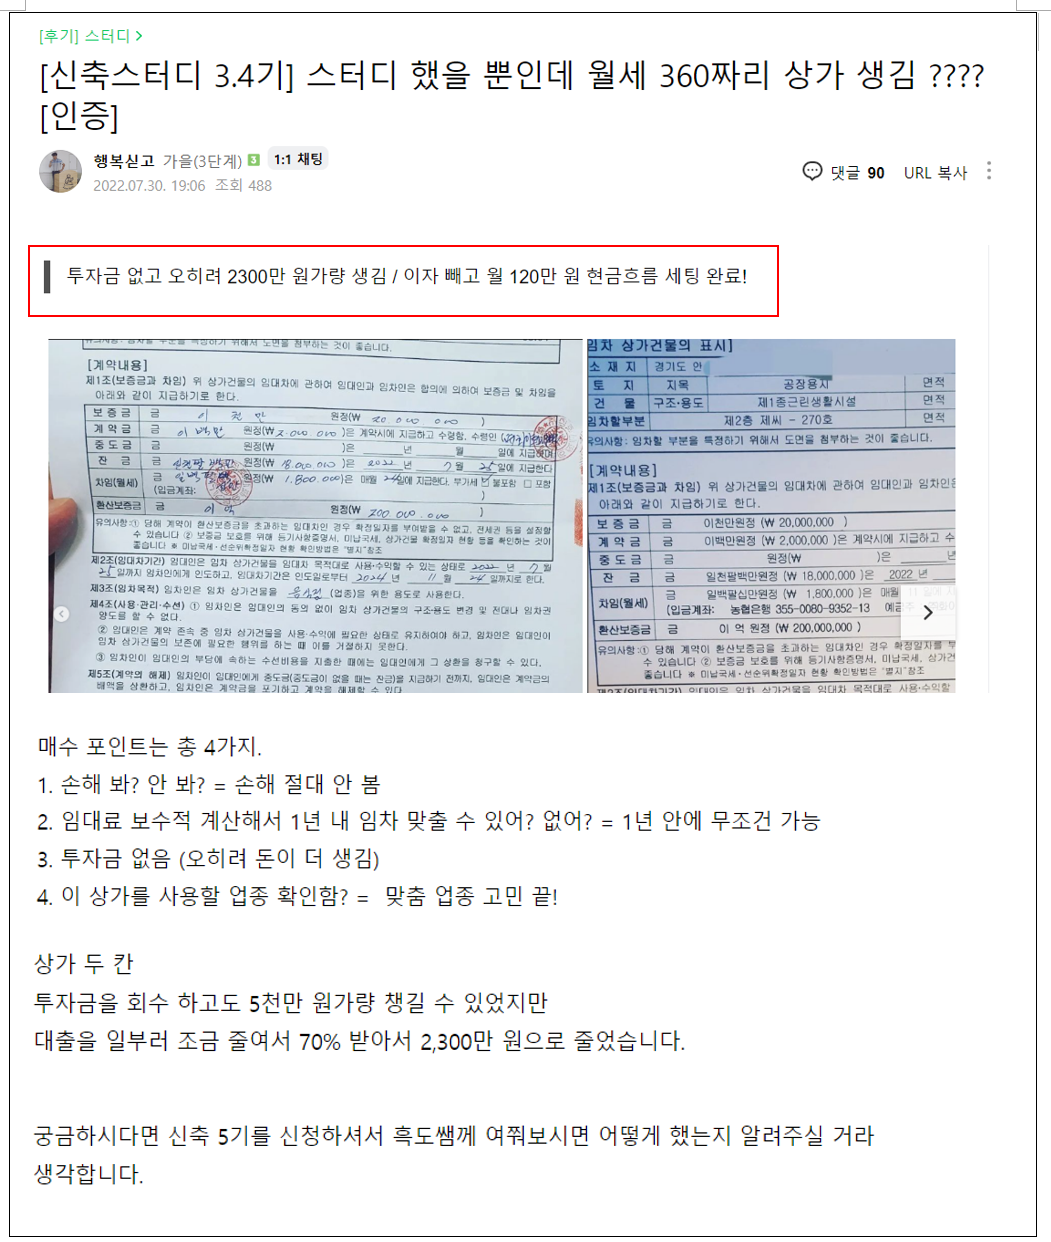 [후기] 스터디 >
[신축스터디 3.4기] 스터디 했을 뿐인데 월세 360짜리 상가 생김 ????
[인증]
행복싣고 가을(3단계) 3 1:1 채팅
2022.07.30. 19:06 조회 488
댓글 90 URL 복사
투자금 없고 오히려 2300만 원가량 생김 / 이자 빼고 월 120만 원 현금흐름 세팅 완료!
특정하기 위해서 도면을 첨부하는 것이 좋습니다.
[계약내용]
제1조(보증금과 차임) 위 상가건물의 임대차에 관하여 임대인과 임차인은 합의에 의하여 보증금 및 차임을
아래와 같이 지급하기로 한다.
보 증 금 금 이 천 만 원정(₩ 20.000.000 )
계 약 금 금 이백만 원정(₩ 2.000.000 )은 계약시에 지급하고 수령함. 수령인 (
중 도 금 금 원정(₩ )은 년 월 일에 지급하며
잔 금 금 원정(₩ 18.000.000 )은 2022 년 7 월 25 일에 지급한다
차임(월세) 금 원정(₩ 1.800.000 )은 매월 24일에 지급한다. 부가세 ☑ 불포함 □ 포함
(입금계좌: )
환산보증금 금 이 억 원정(₩ 200.000.000 )
유의사항:① 당해 계약이 환산보증금을 초과하는 임대차인 경우 확정일자를 부여받을 수 없고, 전세권 등을 설정할
수 있습니다 ② 보증금 보호를 위해 등기사항증명서, 미납국세, 상가건물 확정일자 현황 등을 확인하는 것이
좋습니다 ※ 미납국세·선순위확정일자 현황 확인방법은 "별지"참조
제2조(임대차기간) 임대인은 임차 상가건물을 임대차 목적대로 사용·수익할 수 있는 상태로 2022 년 7 월
25 일까지 임차인에게 인도하고, 임대차기간은 인도일로부터 2024 년 11 월 24 일까지로 한다.
제3조(임차목적) 임차인은 임차 상가건물을 음식점 (업종)을 위한 용도로 사용한다.
제4조(사용·관리·수선) ① 임차인은 임대인의 동의 없이 임차 상가건물의 구조·용도 변경 및 전대나 임차권
양도를 할 수 없다.
② 임대인은 계약 존속 중 임차 상가건물을 사용·수익에 필요한 상태로 유지하여야 하고, 임차인은 임대인이
임차 상가건물의 보존에 필요한 행위를 하는 때 이를 거절하지 못한다.
③ 임차인이 임대인의 부담에 속하는 수선비용을 지출한 때에는 임대인에게 그 상환을 청구할 수 있다.
제5조(계약의 해제) 임차인이 임대인에게 중도금(중도금이 없을 때는 잔금)을 지급하기 전까지, 임대인은 계약금의
배액을 상환하고, 임차인은 계약금을 포기하고 계약을 해제할 수 있다
임차 상가건물의 표시]
소 재 지 경기도 안
토 지 지목 공장용지 면적
건 물 구조·용도 제1종근린생활시설 면적
임차할부분 제2층 제씨 - 270호 면적
유의사항: 임차할 부분을 특정하기 위해서 도면을 첨부하는 것이 좋습니다.
[계약내용]
제1조(보증금과 차임) 위 상가건물의 임대차에 관하여 임대인과 임차인은
아래와 같이 지급하기로 한다.
보 증 금 금 이천만원정 (₩ 20,000,000 )
계 약 금 금 이백만원정 (₩ 2,000,000 )은 계약시에 지급하고 수
중 도 금 금 원정(₩ )은 년
잔 금 금 일천팔백만원정 (₩ 18,000,000 )은 2022 년
차임(월세) 금 일백팔십만원정 (₩ 1,800,000 )은 매월
(입금계좌: 농협은행 355-0080-9352-13 예금주
환산보증금 금 이 억 원정 (₩ 200,000,000 )
유의사항:① 당해 계약이 환산보증금을 초과하는 임대차인 경우 확정일자를 부
수 있습니다 ② 보증금 보호를 위해 등기사항증명서, 미납국세, 상가건
좋습니다 ※ 미납국세·선순위확정일자 현황 확인방법은 "별지"참조
제2조(임대차기간) 임대인은 임차 상가건물을 임대차 목적대로 사용·수익할
매수 포인트는 총 4가지.
1. 손해 봐? 안 봐? = 손해 절대 안 봄
2. 임대료 보수적 계산해서 1년 내 임차 맞출 수 있어? 없어? = 1년 안에 무조건 가능
3. 투자금 없음 (오히려 돈이 더 생김)
4. 이 상가를 사용할 업종 확인함? = 맞춤 업종 고민 끝!
상가 두 칸
투자금을 회수 하고도 5천만 원가량 챙길 수 있었지만
대출을 일부러 조금 줄여서 70% 받아서 2,300만 원으로 줄었습니다.
궁금하시다면 신축 5기를 신청하셔서 흑도쌤께 여쭤보시면 어떻게 했는지 알려주실 거라
생각합니다.